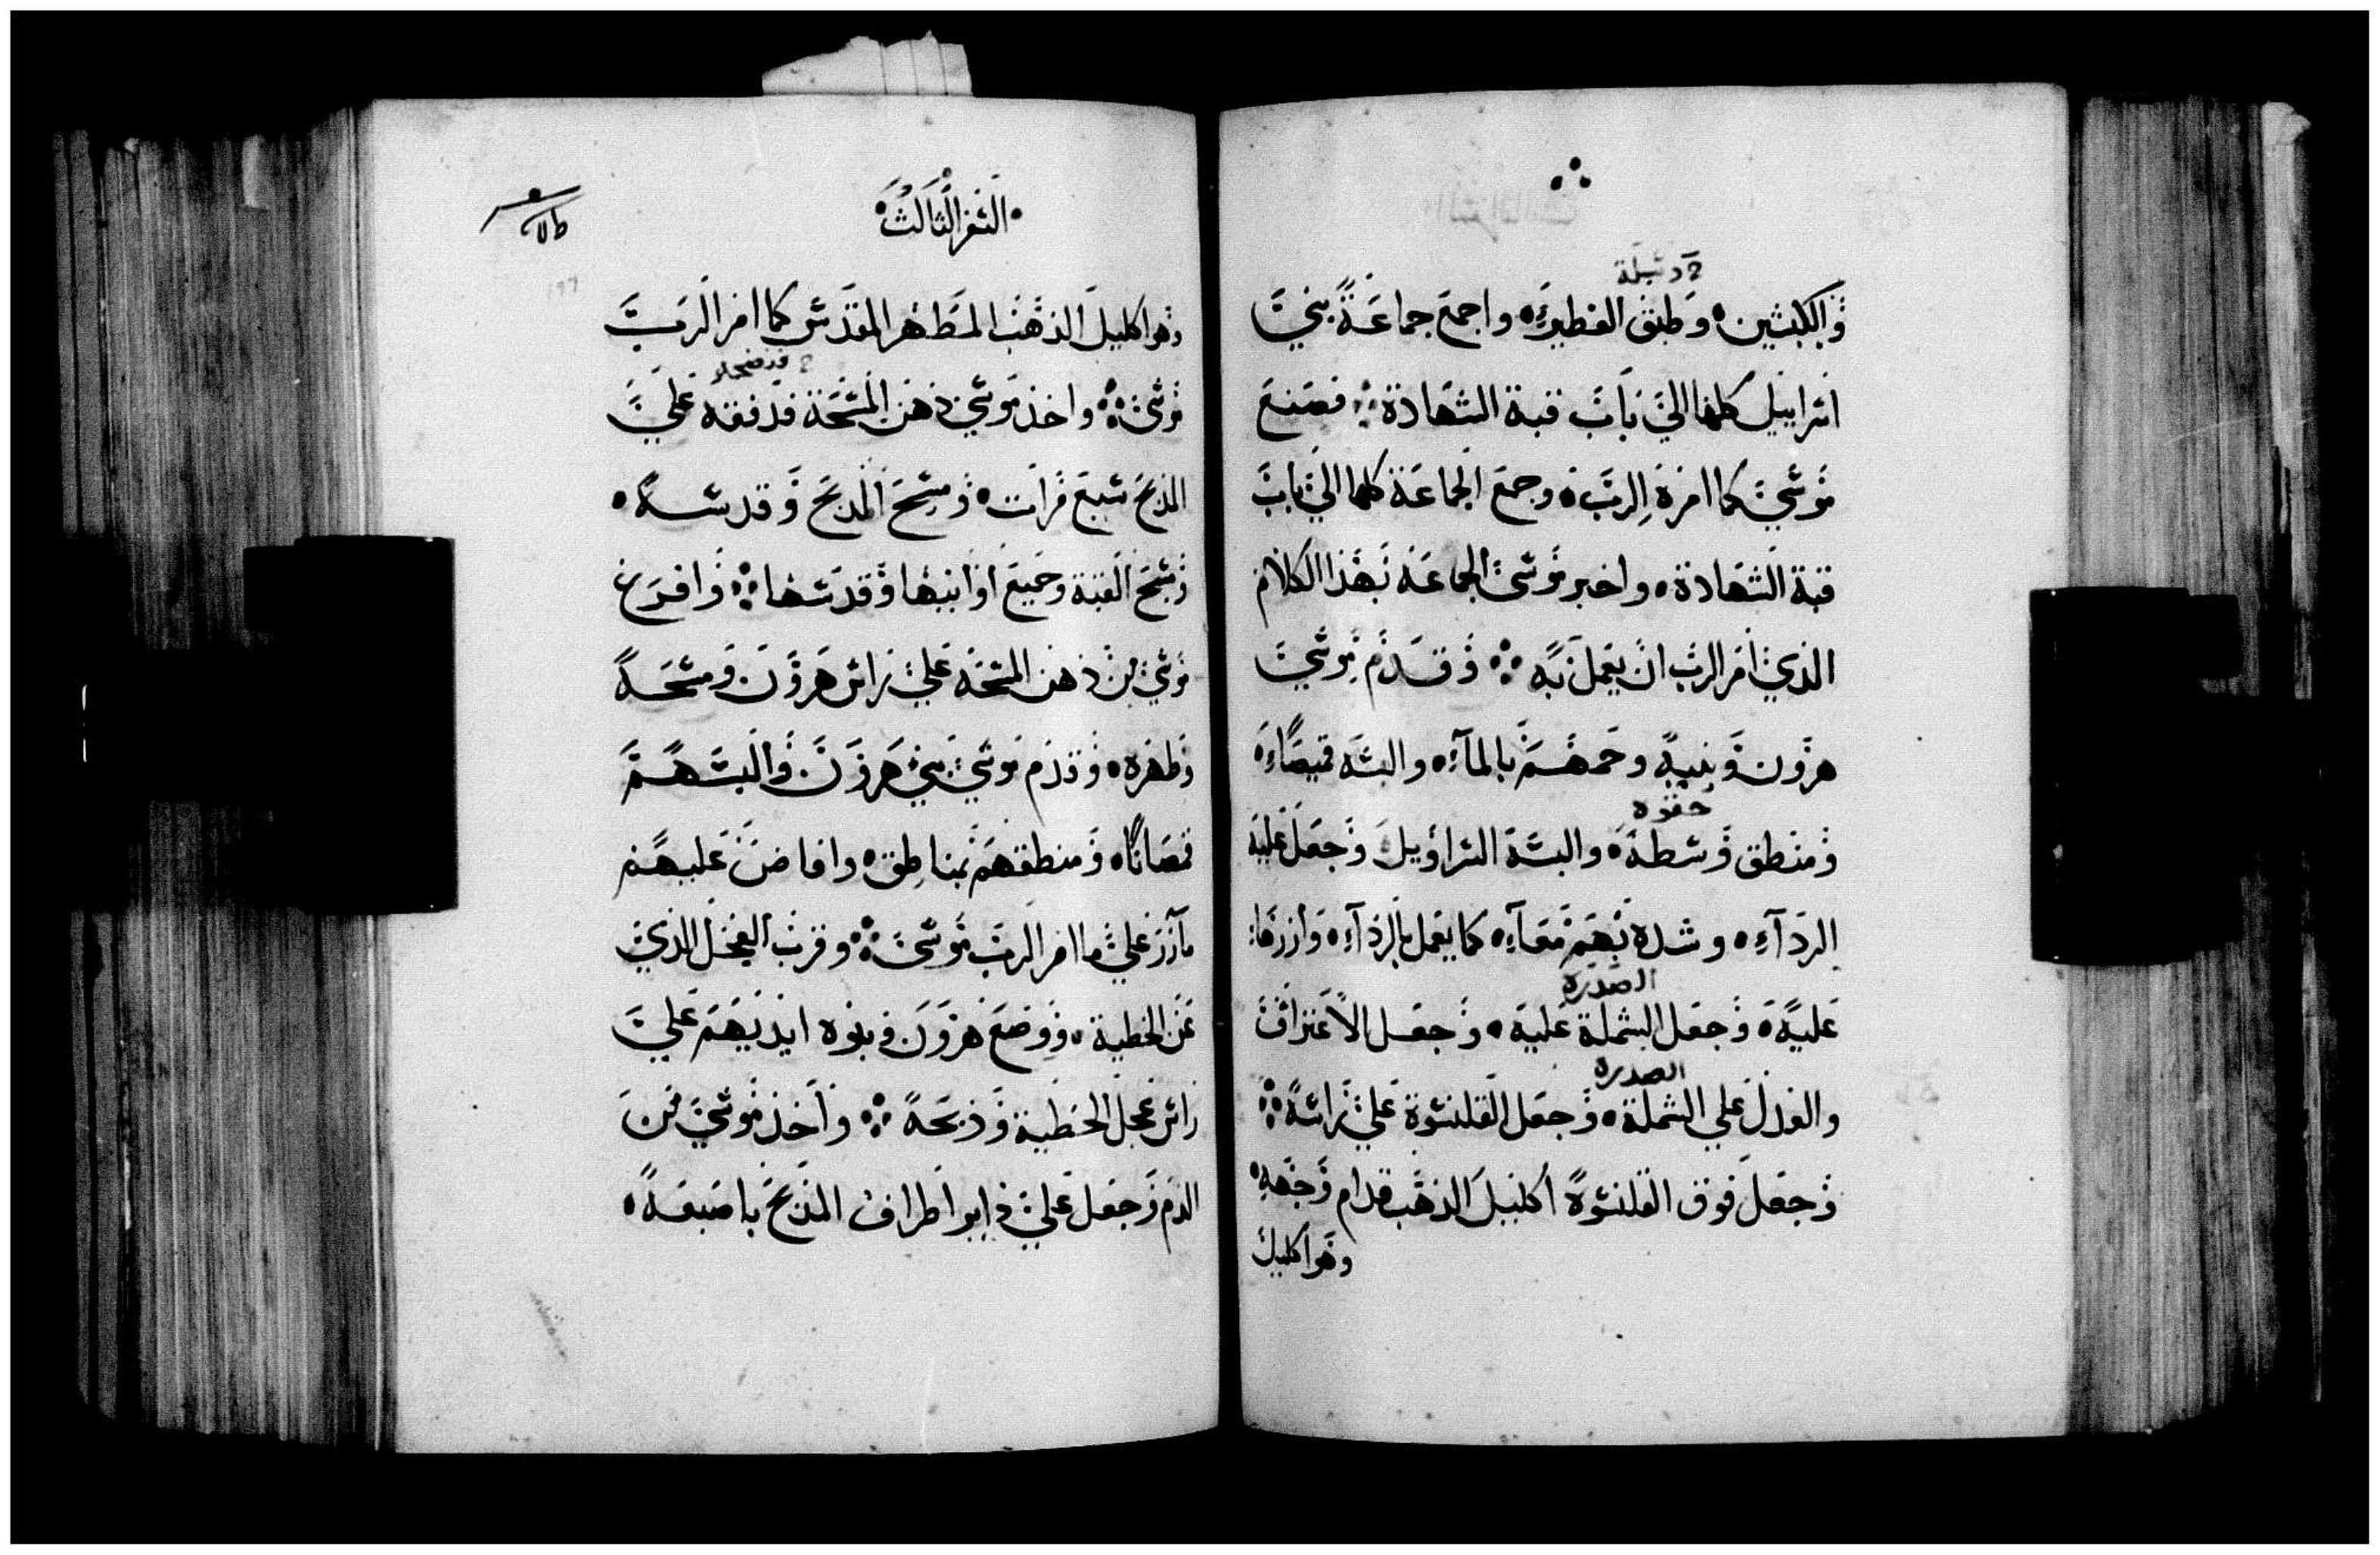 والكبشين. وطبق الفطير. واجمع جماعة بني
اسراييل كلها الي باب قبة الشهادة ∴ فصنع
موسي كما امره الرب. وجمع الجماعة كلها الي باب
قبة الشهادة. واخبر موسي الجماعه بهذا الكلام
الذي امر الرب ان يعمل به ∴ وقدم موسي
هرون وبنيه وحمهم بالمآء. والبسه قميصاً.
حقوه
ومنطق وسطه. والبسه السراويل وجعل عليه
الردآء. وشده بهم معآء. كما يعمل بالردآء. وازرها
الصدره
عليه. وجعل الشملة عليه. وجعل الاعتراف
الصدره
والعدل علي الشملة. وجعل القلنسوة علي راسه ∴
وجعل فوق القلنسوة اكليل الذهب قدام وجهه.
وهو اكليل
السفر الثالث
وهو اكليل الذهب المطهر المقدس كما امر الرب
موسي ∴ واخذ موسي دهن المسحة فدفقه علي
المذبح سبع مرات. ومسح المذبح وقدسه.
ومسح القبة وجميع اوانيها وقدسها ∴ وافرغ
موسي من دهن المسحه علي راس هرون ومسحه
وطهره. وقدم موسي بني هرون والبسهم
قمصاناً. ومنطقهم بمناطق. وافاض عليهم
مآزر علي ما امر الرب موسي ∴ وقرب العجل الذي
عن الخطية. ووضع هرون وبنوه ايديهم علي
راس عجل الخطية وذبحه ∴ واخذ موسي من
الدم وجعل علي دابو اطراف المذبح باصبعه.